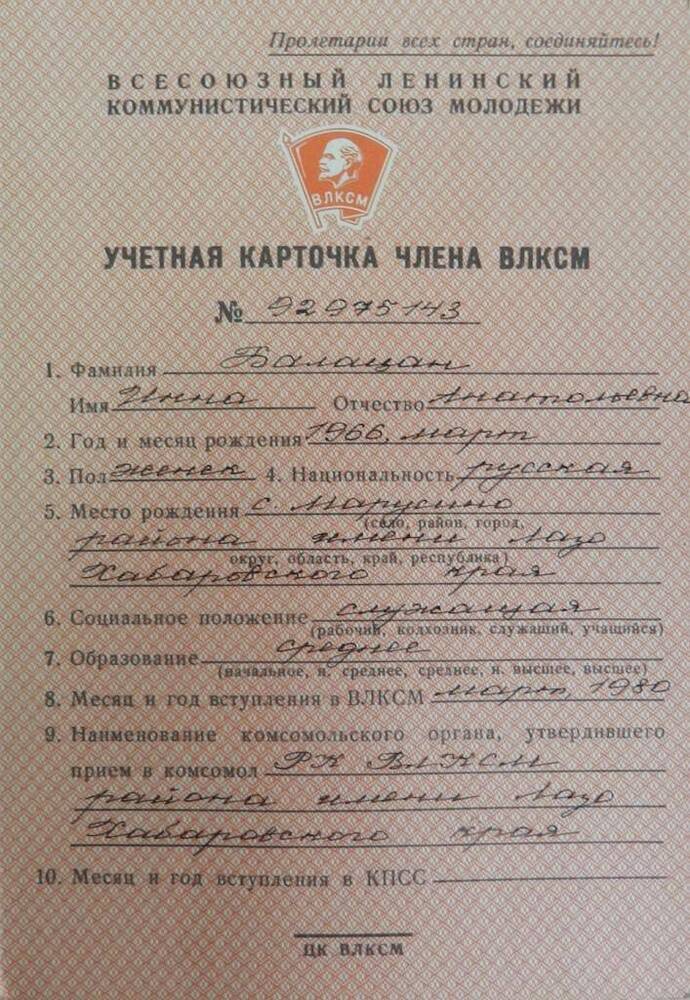 Пролетарии всех стран, соединяйтесь!
ВСЕСОЮЗНЫЙ ЛЕНИНСКИЙ
КОММУНИСТИЧЕСКИЙ СОЮЗ МОЛОДЕЖИ
ВЛКСМ
УЧЕТНАЯ КАРТОЧКА ЧЛЕНА ВЛКСМ
№ 92975143
1. Фамилия Балацан
Имя Инна Отчество Анатольевна
2. Год и месяц рождения 1966, март
3. Пол женск 4. Национальность русская
5. Место рождения с. Марусино
(село, район, город,
района имени Лазо
округ, область, край, республика)
Хабаровского края
6. Социальное положение служащая
(рабочий, колхозник, служащий, учащийся)
7. Образование среднее
(начальное, н. среднее, среднее, н. высшее, высшее)
8. Месяц и год вступления в ВЛКСМ март, 1980
9. Наименование комсомольского органа, утвердившего
прием в комсомол РК ВЛКСМ
района имени Лазо
Хабаровского края
10. Месяц и год вступления в КПСС
ЦК ВЛКСМ